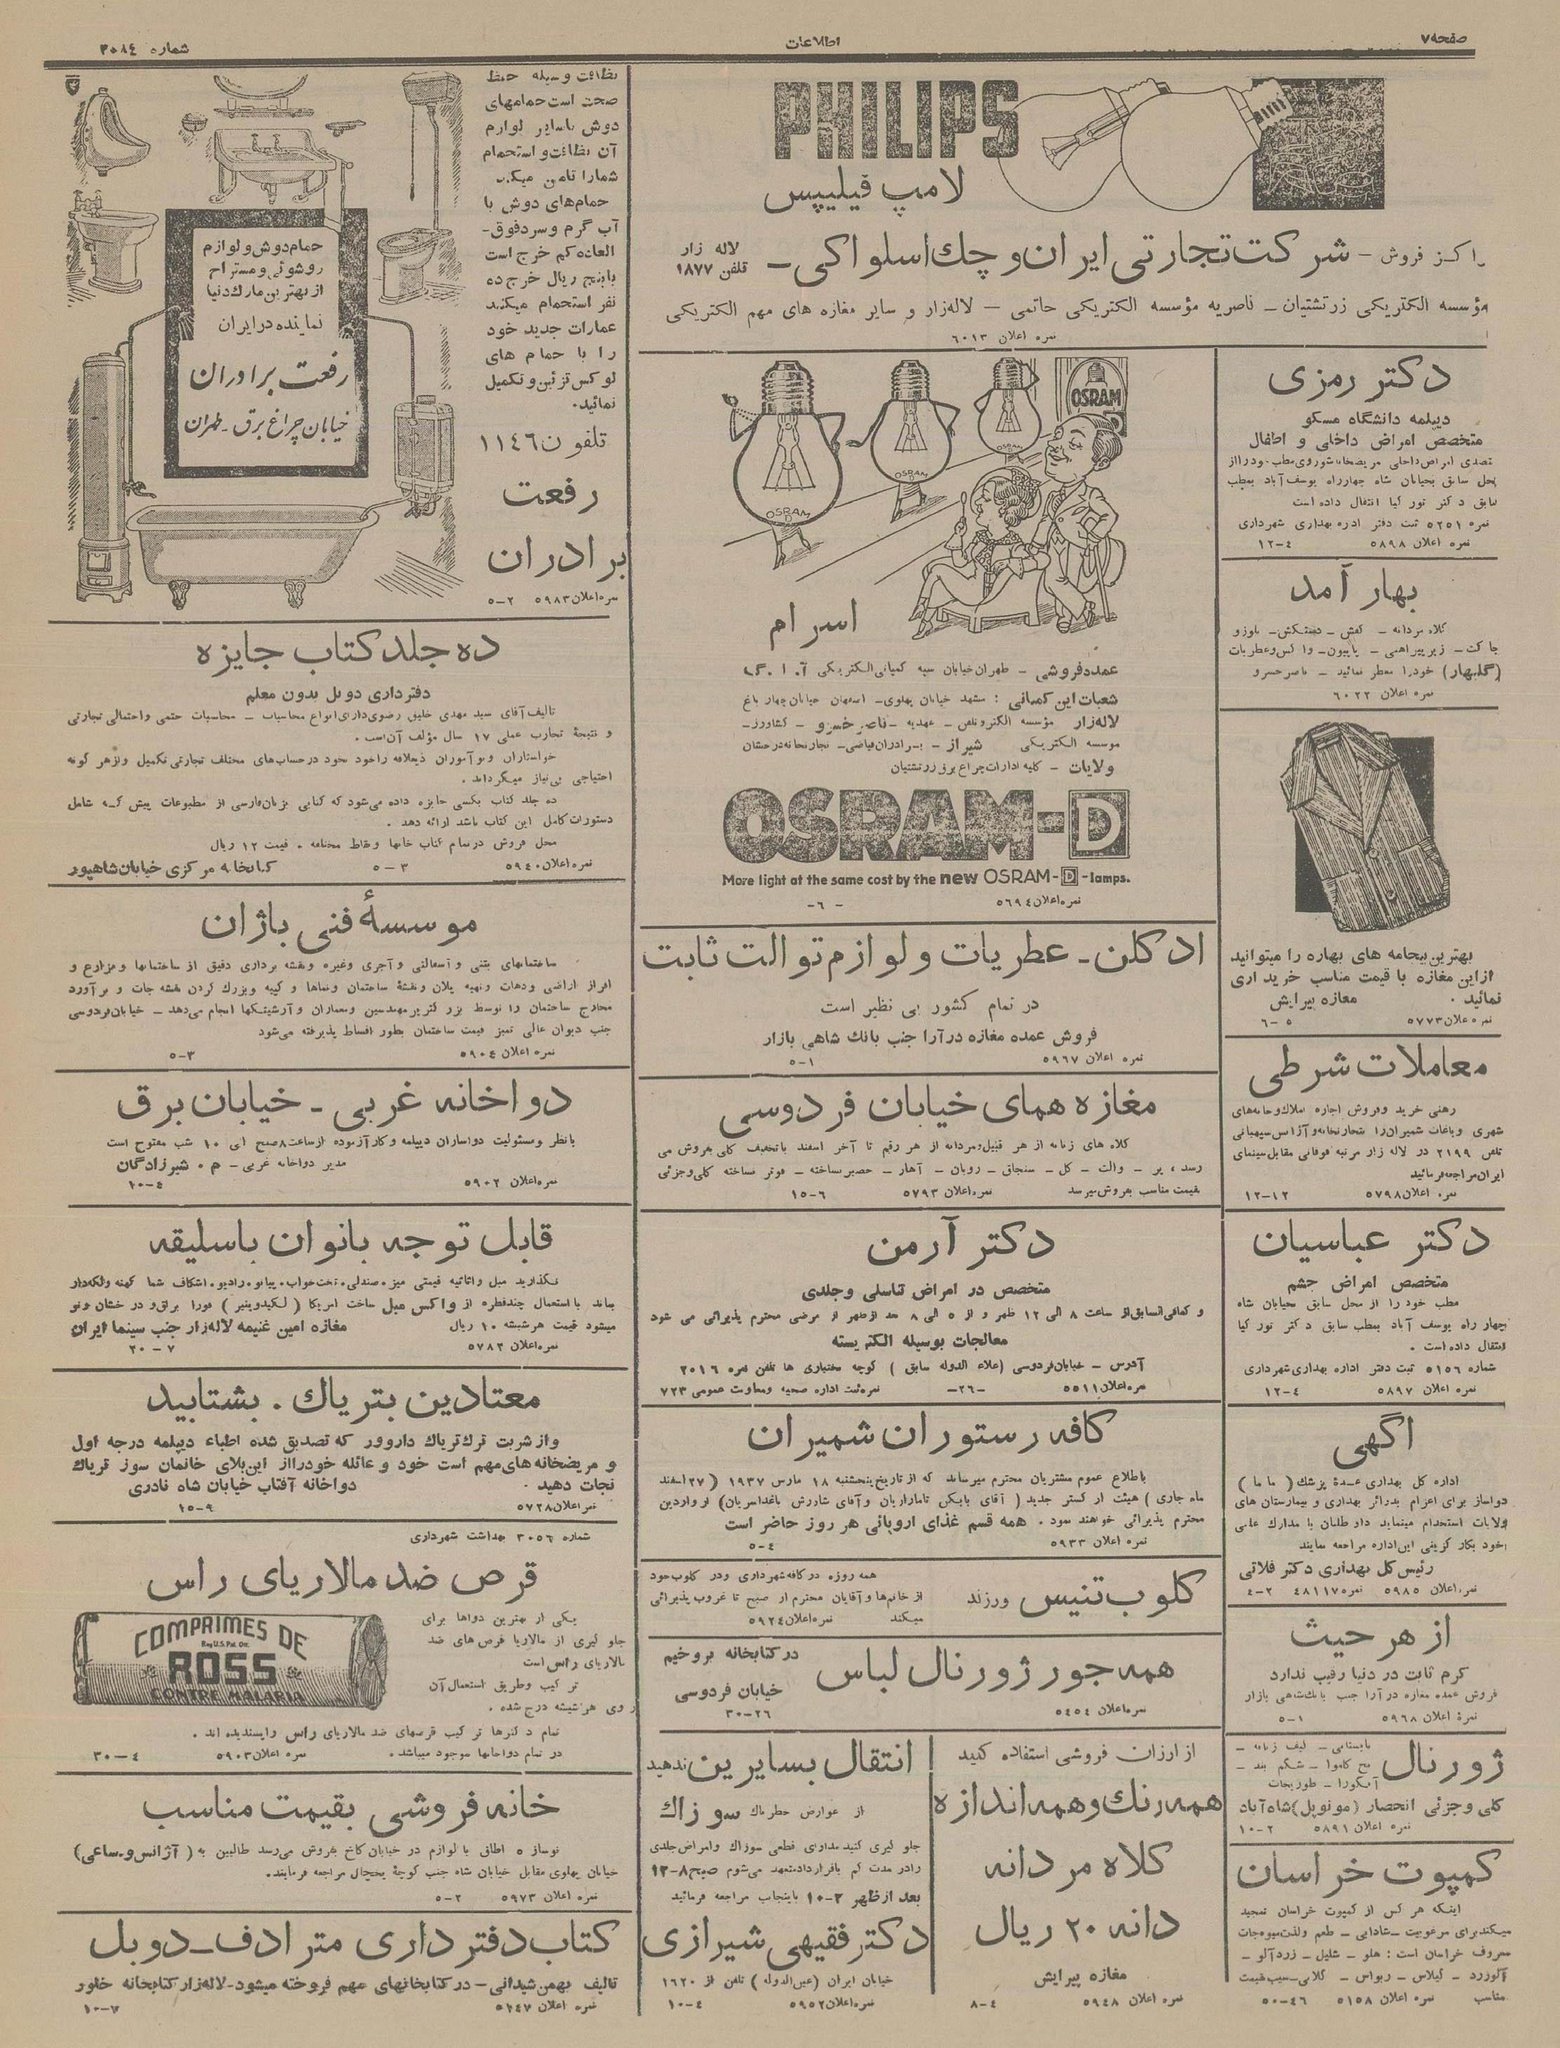 صفحه ۷
اطلاعات
شماره ۳۰۸٤
PHILIPS
لامپ فیلیپس
شرکت تجارتی ایران و چك اسلواکی -
لاله زار
تلفن ۱۸۷۷
مؤسسه الکتریکی زرتشتیان - ناصریه مؤسسه الکتریکی حاتمی - لاله‌زار و سایر مغازه های مهم الکتریکی
نمره اعلان ۶۰۱۳
دکتر رمزی
دیپلمه دانشگاه مسکو
متخصص امراض داخلی و اطفال
محل سابق بخیابان شاه چهارراه یوسف آباد بمطب
سابق دکتر نور کیا انتقال داده است
نمره ۵۲۵۱ ثبت دفتر اداره بهداری شهرداری
نمره اعلان ۵۸۹۸ ۴-۱۲
بهار آمد
کلاه مردانه - کفش - دستکش - بلوز و
ژاکت - زیرپیراهنی - پاپیون - واکس و عطریات
(گلبهار) خود را معطر نمائید - ناصرخسرو
نمره اعلان ۶۰۲۲
بهترین پیجامه های بهاره را میتوانید
از این مغازه با قیمت مناسب خریداری
نمائید . مغازه پیرایش
نمره اعلان ۵۷۷۳ ۵-۶
معاملات شرطی
رهنی خرید و فروش اجاره املاک و خانه‌های
شهری و باغات شمیران را بتجارتخانه و آژانس سپهبانی
تلفن ۲۱۹۹ در لاله زار مرتبه فوقانی مقابل سینمای
ایران مراجعه فرمائید
نمره اعلان ۵۷۹۸ ۱۲-۱۲
دکتر عباسیان
متخصص امراض چشم
مطب خود را از محل سابق بخیابان شاه
چهار راه یوسف آباد بمطب سابق دکتر نور کیا
انتقال داده است .
شماره ۵۱۵۶ ثبت دفتر اداره بهداری شهرداری
نمره اعلان ۵۸۹۷ ۴-۱۲
آگهی
اداره کل بهداری عدهٔ پزشك ( ماما )
دواساز برای اعزام بدوائر بهداری و بیمارستان های
ولایات استخدام مینماید داوطلبان با مدارك علمی
خود بکار گزینی این اداره مراجعه نمایند
رئیس کل بهداری دکتر فلاتی
نمره اعلان ۵۹۸۵ نمره ۴۸۱۱۷ ۲-۴
از هر حیث
کرم ثابت در دنیا رقیب ندارد
فروش عمده مغازه درآرا جنب بانک شاهی بازار
نمرهٔ اعلان ۵۹۶۸ ۱-۵
ژورنال
کلی و جزئی انحصار (مونوپل) شاه آباد
نمره اعلان ۵۸۹۱ ۲-۱۰
کمپوت خراسان
اینکه هر کس از کمپوت خراسان تمجید
میکند برای مرغوبیت - شادابی - طعم و لذت میوه‌جات
معروف خراسان است : هلو - شلیل - زردآلو -
آلوزرد - گیلاس - ریواس - گلابی - سیب قیمت
مناسب نمره اعلان ۵۱۵۸ ۴۶-۵۰
OSRAM
OSRAM
OSRAM
اسرام
عمده‌فروشی - طهران خیابان سپه کمپانی الکتریکی آ. ا. گ.
شعبات این کمپانی : مشهد خیابان پهلوی - اصفهان خیابان چهار باغ
لاله‌زار مؤسسه الکتروتلفن - مهدیه - ناصر خسرو - کشاورز -
موسسه الکتریکی شیراز - برادران فیاضی - تجارتخانه درخشان
ولایات - کلیه ادارات چراغ برق زرتشتیان
OSRAM-D
More light at the same cost by the new OSRAM-D-lamps.
نمره اعلان ۵۶۹۴ - ۶-
ادکلن - عطریات و لوازم توالت ثابت
در تمام کشور بی نظیر است
فروش عمده مغازه درآرا جنب بانك شاهی بازار
نمره اعلان ۵۹۶۷ ۱-۵
مغازه همای خیابان فردوسی
کلاه های زنانه از هر قبیل و مردانه از هر رقم تا آخر اسفند با تخفیف کلی بفروش می
رسد ، پر - والت - گل - سنجاق - روبان - آهار - حصیر نساخته - فوتر نساخته کلی و جزئی
بقیمت مناسب بفروش میرسد نمره اعلان ۵۷۹۳ ۶-۱۵
دکتر آرمن
متخصص در امراض تناسلی و جلدی
و کمافی السابق از ساعت ۸ الی ۱۲ ظهر و از ۵ الی ۸ بعد از ظهر از مرضی محترم پذیرائی می شود
معالجات بوسیله الکتریسته
آدرس - خیابان فردوسی (علاء الدوله سابق) کوچه بختیاری ها تلفن نمره ۲۰۱۶
نمره اعلان ۵۵۱۱ -۲۶- نمره ثبت اداره صحیه و معاونت عمومی ۷۲۳
کافه رستوران شمیران
باطلاع عموم مشتریان محترم میرساند که از تاریخ پنجشنبه ۱۸ مارس ۱۹۳۷ (۲۷ اسفند
محترم پذیرائی خواهند نمود . همه قسم غذای اروپائی هر روز حاضر است
نمره اعلان ۵۹۳۳ ۴-۵
کلوب تنیس ورزند
همه روزه در کافه شهرداری و در کلوب خود
از خانم‌ها و آقایان محترم از صبح تا غروب پذیرائی
میکند نمره اعلان ۵۹۲۴
همه جور ژورنال لباس
در کتابخانه بروخیم
خیابان فردوسی
نمره اعلان ۵۴۵۴ ۲۶-۳۰
از ارزان فروشی استفاده کنید
همه رنك و همه اندازه
کلاه مردانه
دانه ۲۰ ریال
مغازه پیرایش
نمره اعلان ۵۹۴۸ ۴-۸
انتقال بسایرین ندهید
از عوارض خطرناك سوزاك
جلو گیری کنید مداوای قطعی سوزاك و امراض جلدی
را در مدت کم باقرارداد تعهد می‌شوم صبح ۸-۱۲
بعد از ظهر ۲-۱۰ باینجانب مراجعه فرمائید
دکتر فقیهی شیرازی
خیابان ایران (عین‌الدوله) تلفن از ۱۶۲۰
نمره اعلان ۵۹۵۲ ۴-۱۰
نظافت وسیله حفظ
صحت است حمامهای
دوش با سایر لوازم
آن نظافت و استحمام
شما را تامین میکند
حمام‌های دوش با
آب گرم و سرد فوق-
العاده کم خرج است
با پنج ریال خرج ده
نفر استحمام میکنند
عمارات جدید خود
را با حمام های
لوکس تزئین و تکمیل
نمائید.
تلفون ۱۱٤٦
رفعت
برادران
نمره اعلان ۵۹۸۳ ۲-۵
حمام دوش و لوازم
روشوئی و مستراح
از بهترین مارك دنیا
نماینده در ایران
رفعت برادران
خیابان چراغ برق - طهران
ده جلد کتاب جایزه
دفترداری دوبل بدون معلم
تالیف آقای سید مهدی خلیق رضوی دارای انواع محاسبات - محاسبات حتمی و احتمالی تجارتی
و نتیجهٔ تجارب عملی ۱۷ سال مؤلف آن است .
احتیاجی بی‌نیاز میگرداند .
ده جلد کتاب بکسی جایزه داده می‌شود که کتابی بزبان فارسی از مطبوعات پیش که شامل
دستورات کامل این کتاب باشد ارائه دهد .
محل فروش در تمام کتاب خانها و نقاط مختلفه . قیمت ۱۲ ریال
نمره اعلان ۵۹۴۰ ۳-۵ کتابخانه مرکزی خیابان شاهپور
موسسهٔ فنی باژان
ساختمانهای بتنی و آسفالتی و آجری و غیره و نقشه برداری دقیق از ساختمانها و مزارع و
افراز اراضی و دهات و تهیه پلان و نقشهٔ ساختمان و نماها و کپیه و بزرك کردن نقشه جات و برآورد
مخارج ساختمان را توسط بزرگترین مهندسین و معماران و آرشیتکها انجام می‌دهد - خیابان فردوسی
جنب دیوان عالی تمیز قیمت ساختمان بطور اقساط پذیرفته می‌شود
نمره اعلان ۵۹۰۴ ۳-۵
دواخانه غربی - خیابان برق
بانظر و مسئولیت دواسازان دیپلمه و کارآزموده از ساعت ۸ صبح الی ۱۰ شب مفتوح است
مدیر دواخانه غربی - م . شیرزادگان
نمره اعلان ۵۹۰۲ ۴-۱۰
قابل توجه بانوان باسلیقه
نگذارید مبل و اثاثیه قیمتی میز . صندلی . تخت‌خواب . پیانو . رادیو . اشکاف شما کهنه و لکه‌دار
بماند با استعمال چند قطره از واکس مبل ساخت امریکا (لیکیدوینیر) فورا براق و درخشان و نو
میشود قیمت هر شیشه ۱۰ ریال مغازه امین غنیمه لاله‌زار جنب سینما ایران
نمره اعلان ۵۷۸۲ ۷-۲۰
معتادین بتریاك . بشتابید
و از شربت ترك تریاك داروور که تصدیق شده اطباء دیپلمه درجه اول
و مریضخانه های مهم است خود و عائله خود را از این بلای خانمان سوز تریاك
نجات دهید . دواخانه آفتاب خیابان شاه نادری
نمره اعلان ۵۷۲۸ ۹-۱۵
شماره ۳۰۵۶ بهداشت شهرداری
قرص ضد مالاریای راس
COMPRIMES DE
Reg U.S. Pat. Off.
ROSS
CONTRE MALARIA
یکی از بهترین دواها برای
جلو گیری از مالاریا قرص های ضد
مالاریای راس است
ترکیب و طریق استعمال آن
روی هر شیشه درج شده .
تمام دکترها ترکیب قرصهای ضد مالاریای راس را پسندیده اند .
در تمام دواخانها موجود میباشد . نمره اعلان ۵۹۰۳ ۴-۳۰
خانه فروشی بقیمت مناسب
نوساز ۵ اطاقی با لوازم در خیابان کاخ بفروش می‌رسد طالبین به (آژانس و.ساعی)
خیابان پهلوی مقابل خیابان شاه جنب کوچهٔ یخچال مراجعه فرمایند.
نمره اعلان ۵۹۷۳ ۲-۵
کتاب دفترداری مترادف - دوبل
تالیف بهمن شیدانی - در کتابخانهای مهم فروخته میشود - لاله‌زار کتابخانه خاور
نمره اعلان ۵۲۴۷ ۷-۱۰